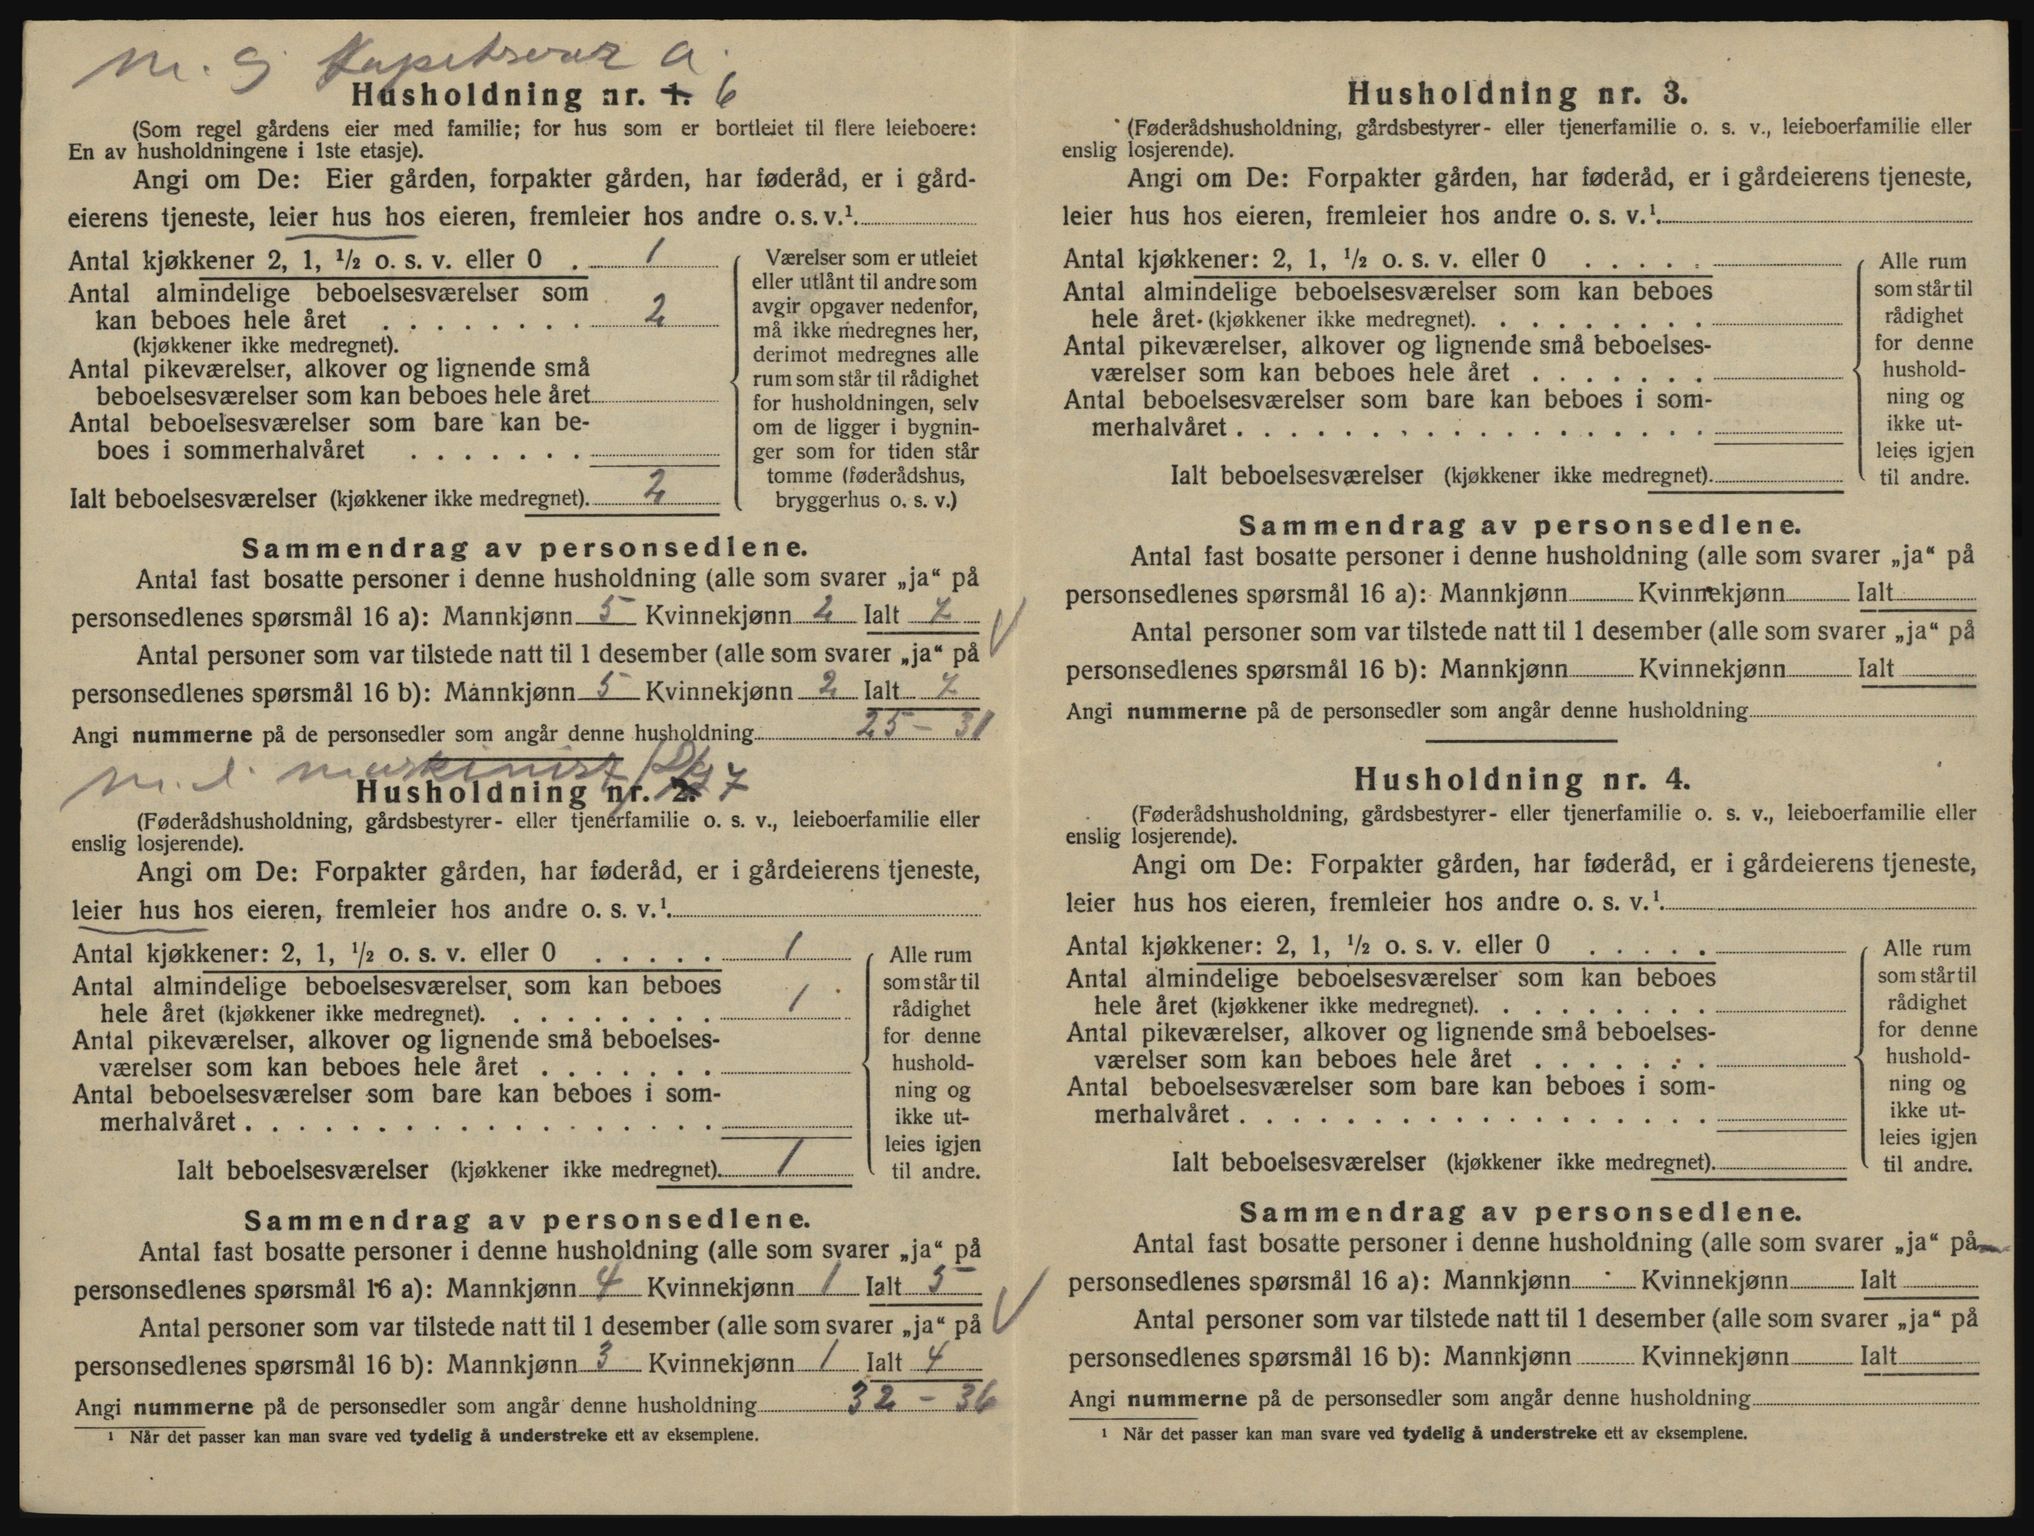 m. g
Husholdning nr. 1. 6
(Som regel gårdens eier med familie; for hus som er bortleiet til flere leieboere:
En av husholdningene i 1ste etasje).
Angi om De: Eier gården, forpakter gården, har føderåd, er i gård-
eierens tjeneste, leier hus hos eieren, fremleier hos andre o. s. v.¹
Antal kjøkkener 2, 1, ½ o. s. v. eller 0 . 1
Antal almindelige beboelsesværelser som
kan beboes hele året . . . . . . . . 2
(kjøkkener ikke medregnet).
Antal pikeværelser, alkover og lignende små
beboelsesværelser som kan beboes hele året
Antal beboelsesværelser som bare kan be-
boes i sommerhalvåret . . . . . . .
Ialt beboelsesværelser (kjøkkener ikke medregnet). 2
Værelser som er utleiet
eller utlånt til andre som
avgir opgaver nedenfor,
må ikke medregnes her,
derimot medregnes alle
rum som står til rådighet
for husholdningen, selv
om de ligger i bygnin-
ger som for tiden står
tomme (føderådshus,
bryggerhus o. s. v.)
Sammendrag av personsedlene.
Antal fast bosatte personer i denne husholdning (alle som svarer „ja“ på
personsedlenes spørsmål 16 a): Mannkjønn 5 Kvinnekjønn 2 Ialt 7
Antal personer som var tilstede natt til 1 desember (alle som svarer „ja“ på
personsedlenes spørsmål 16 b): Mannkjønn 5 Kvinnekjønn 2 Ialt 7
Angi nummerne på de personsedler som angår denne husholdning 25 – 31
m. l. maskinist
Husholdning nr. 2. 7
(Føderådshusholdning, gårdsbestyrer- eller tjenerfamilie o. s. v., leieboerfamilie eller
enslig losjerende).
Angi om De: Forpakter gården, har føderåd, er i gårdeierens tjeneste,
leier hus hos eieren, fremleier hos andre o. s. v.¹
Antal kjøkkener: 2, 1, ½ o. s. v. eller 0 . . . . . 1
Antal almindelige beboelsesværelser som kan beboes
hele året (kjøkkener ikke medregnet). . . . . . . . . 1
Antal pikeværelser, alkover og lignende små beboelses-
værelser som kan beboes hele året . . . . . . .
Antal beboelsesværelser som bare kan beboes i som-
merhalvåret . . . . . . . . . . . . . . . . . .
Ialt beboelsesværelser (kjøkkener ikke medregnet). 1
Alle rum
som står til
rådighet
for denne
hushold-
ning og
ikke ut-
leies igjen
til andre.
Sammendrag av personsedlene.
Antal fast bosatte personer i denne husholdning (alle som svarer „ja“ på
personsedlenes spørsmål 16 a): Mannkjønn 4 Kvinnekjønn 1 Ialt 5
Antal personer som var tilstede natt til 1 desember (alle som svarer „ja“ på
personsedlenes spørsmål 16 b): Mannkjønn 3 Kvinnekjønn 1 Ialt 4
Angi nummerne på de personsedler som angår denne husholdning 32 – 36
¹ Når det passer kan man svare ved tydelig å understreke ett av eksemplene.
Husholdning nr. 3.
(Føderådshusholdning, gårdsbestyrer- eller tjenerfamilie o. s. v., leieboerfamilie eller
enslig losjerende).
Angi om De: Forpakter gården, har føderåd, er i gårdeierens tjeneste,
leier hus hos eieren, fremleier hos andre o. s. v.¹
Antal kjøkkener: 2, 1, ½ o. s. v. eller 0 . . . . .
Antal almindelige beboelsesværelser som kan beboes
hele året (kjøkkener ikke medregnet). . . . . . . . .
Antal pikeværelser, alkover og lignende små beboelses-
værelser som kan beboes hele året . . . . . . .
Antal beboelsesværelser som bare kan beboes i som-
merhalvåret . . . . . . . . . . . . . . . . . .
Ialt beboelsesværelser (kjøkkener ikke medregnet).
Alle rum
som står til
rådighet
for denne
hushold-
ning og
ikke ut-
leies igjen
til andre.
Sammendrag av personsedlene.
Antal fast bosatte personer i denne husholdning (alle som svarer „ja“ på
personsedlenes spørsmål 16 a): Mannkjønn Kvinnekjønn Ialt
Antal personer som var tilstede natt til 1 desember (alle som svarer „ja“ på
personsedlenes spørsmål 16 b): Mannkjønn Kvinnekjønn Ialt
Angi nummerne på de personsedler som angår denne husholdning
Husholdning nr. 4.
(Føderådshusholdning, gårdsbestyrer- eller tjenerfamilie o. s. v., leieboerfamilie eller
enslig losjerende).
Angi om De: Forpakter gården, har føderåd, er i gårdeierens tjeneste,
leier hus hos eieren, fremleier hos andre o. s. v.¹
Antal kjøkkener: 2, 1, ½ o. s. v. eller 0 . . . . .
Antal almindelige beboelsesværelser som kan beboes
hele året (kjøkkener ikke medregnet). . . . . . . . .
Antal pikeværelser, alkover og lignende små beboelses-
værelser som kan beboes hele året . . . . . . .
Antal beboelsesværelser som bare kan beboes i som-
merhalvåret . . . . . . . . . . . . . . . . . .
Ialt beboelsesværelser (kjøkkener ikke medregnet).
Alle rum
som står til
rådighet
for denne
hushold-
ning og
ikke ut-
leies igjen
til andre.
Sammendrag av personsedlene.
Antal fast bosatte personer i denne husholdning (alle som svarer „ja“ på
personsedlenes spørsmål 16 a): Mannkjønn Kvinnekjønn Ialt
Antal personer som var tilstede natt til 1 desember (alle som svarer „ja“ på
personsedlenes spørsmål 16 b): Mannkjønn Kvinnekjønn Ialt
Angi nummerne på de personsedler som angår denne husholdning
¹ Når det passer kan man svare ved tydelig å understreke ett av eksemplene.